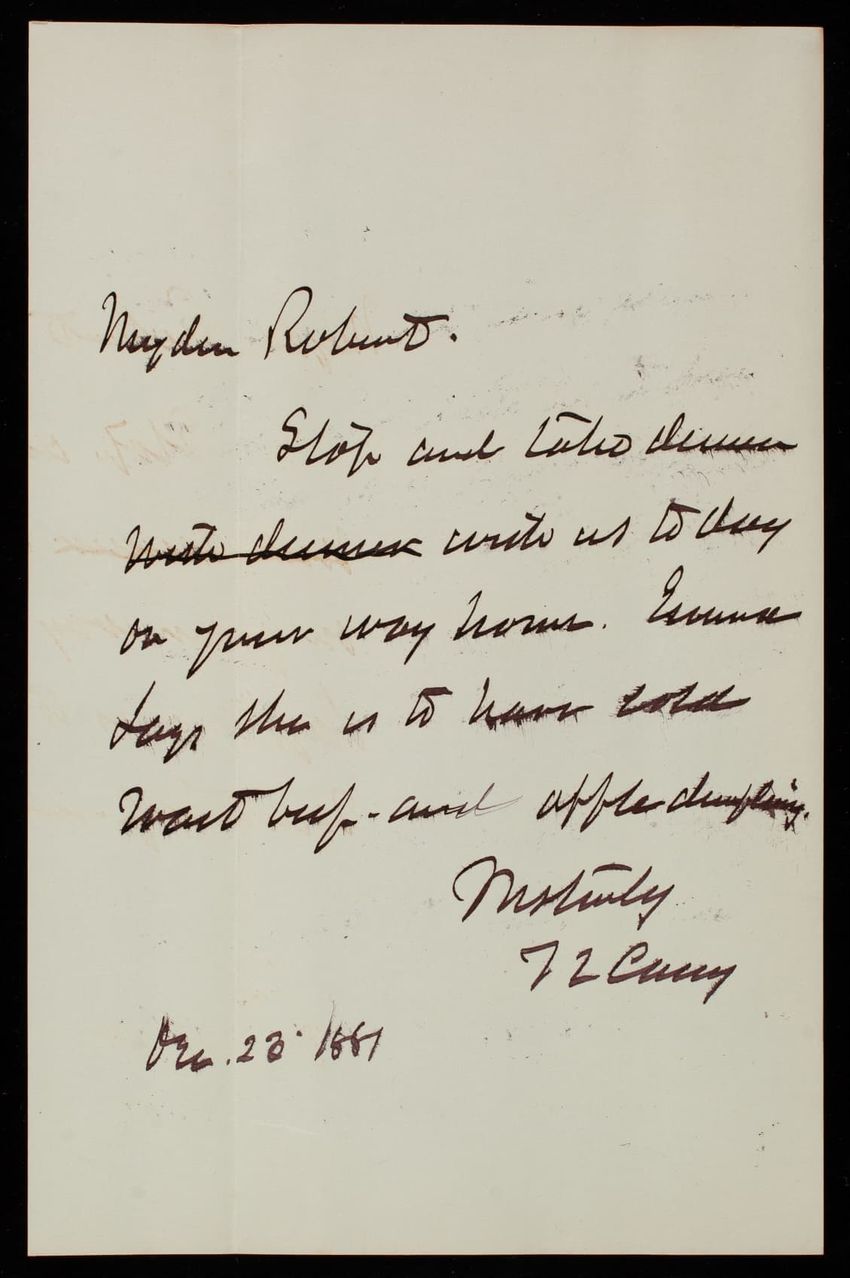 My dear Robert.
Stop and take dinner
with dinner with us to day
on your way home. Emma
says she is to have cold
roast beef - and apple dumpling.
Most truly
T L Casey
Dec. 23 1881